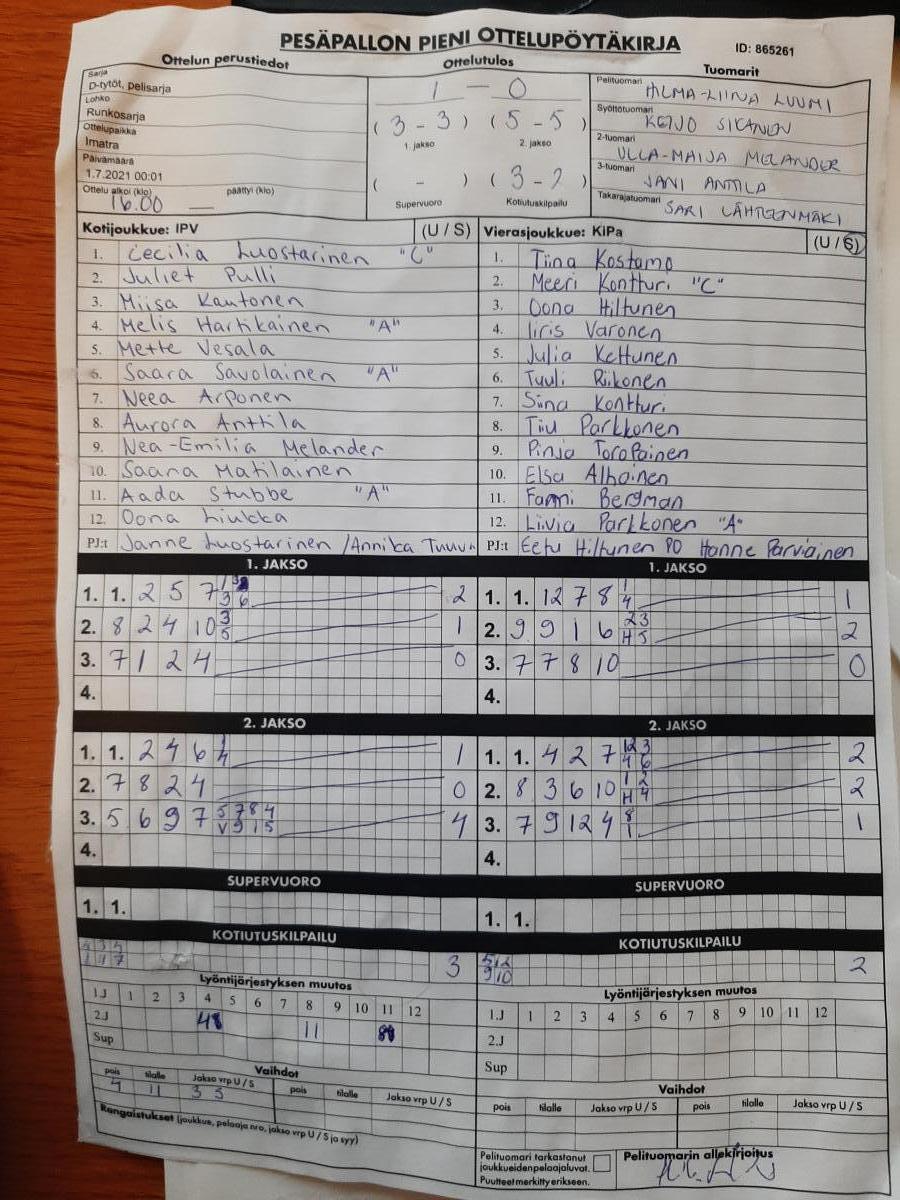 PESÄPALLON PIENI OTTELUPÖYTÄKIRJA
ID: 865261
Ottelun perustiedot
Sarja
D-tytöt, pelisarja
Lohko
Runkosarja
Ottelupaikka
Imatra
Päivämäärä
1.7.2021 00:01
Ottelu alkoi (klo) päättyi (klo)
16.00
Ottelutulos
1 - 0
(3 - 3) (5 - 5)
1. jakso 2. jakso
( - ) (3 - 2)
Supervuoro Kotiutuskilpailu
Tuomarit
Pelituomari HILMA-LIINA LUUMI
Syöttötuomari KEIJO SIKANEN
2-tuomari ULLA-MAIJA MELANDER
3-tuomari JANI ANTTILA
Takarajatuomari SARI LÄHTEENMÄKI
Kotijoukkue: IPV (U / S)
1. Cecilia Luostarinen "C"
2. Juliet Pulli
3. Miisa Kautonen
4. Melis Hartikainen "A"
5. Mette Vesala
6. Saara Savolainen "A"
7. Neea Arponen
8. Aurora Anttila
9. Nea-Emilia Melander
10. Saana Matilainen
11. Aada Stubbe "A"
12. Oona Liukka
PJ:t Janne Luostarinen / Annika
Vierasjoukkue: KiPa (U / S)
1. Tiina Kostamo
2. Meeri Kontturi "C"
3. Oona Hiltunen
4. Iiris Varonen
5. Julia Kettunen
6. Tuuli Riikonen
7. Siina Kontturi
8. Tiu Parkkonen
9. Pinja Toropainen
10. Elsa Alhainen
11. Fanni Bergman
12. Liivia Parkkonen "A"
PJ:t Eetu Hiltunen PO Hanne Parviainen
1. JAKSO
1. 1. 2 5 7 2
2. 8 2 4 10 3 5 1
3. 7 1 2 4 0
4.
1. JAKSO
1. 1. 12 7 8 1 4 1
2. 9 9 1 6 2 3 H 5 2
3. 7 7 8 10 0
4.
2. JAKSO
1. 1. 2 4 6 1
2. 7 8 2 4 0
3. 5 6 9 7 5 7 8 4 V 9 1 5 4
4.
2. JAKSO
1. 1. 4 2 7 12 3 4 6 2
2. 8 3 6 10 1 2 H 4 2
3. 7 9 12 4 8 1 1
4.
SUPERVUORO
1. 1.
SUPERVUORO
1. 1.
KOTIUTUSKILPAILU
3
KOTIUTUSKILPAILU
5 12
9 10
2
Lyöntijärjestyksen muutos
1.J 1 2 3 4 5 6 7 8 9 10 11 12
2.J 11
Sup
Vaihdot
pois tilalle Jakso vrp U / S pois tilalle Jakso vrp U / S
11 3 S
Rangaistukset (joukkue, pelaaja nro, jakso vrp U / S ja syy)
Lyöntijärjestyksen muutos
1.J 1 2 3 4 5 6 7 8 9 10 11 12
2.J
Sup
Vaihdot
pois tilalle Jakso vrp U / S pois tilalle Jakso vrp U / S
Pelituomari tarkastanut
joukkueidenpelaajaluvat.
Puutteet merkitty erikseen.
Pelituomarin allekirjoitus